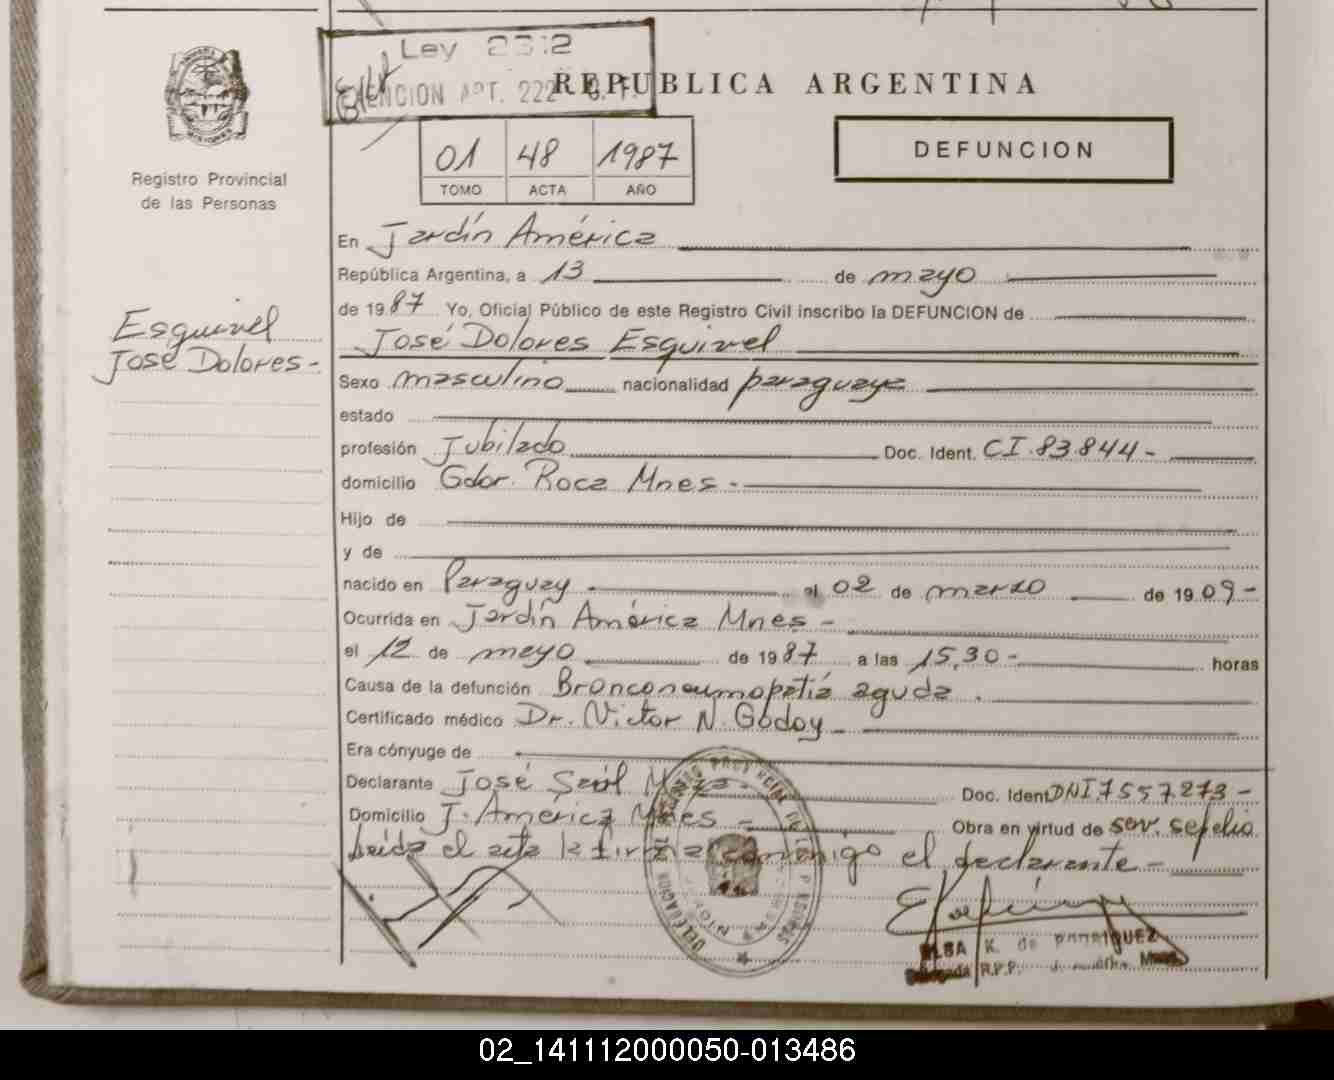 Ley 2312
EXENCION ART. 222 C. F.
REPUBLICA ARGENTINA
01 48 1987
TOMO ACTA AÑO
DEFUNCION
Registro Provincial
de las Personas
En Jardín América
República Argentina, a 13 de mayo
de 1987 Yo, Oficial Público de este Registro Civil inscribo la DEFUNCION de
José Dolores Esquivel
Esquivel
José Dolores-
Sexo masculino nacionalidad paraguaya
estado
profesión Jubilado Doc. Ident. CI.83.844-
domicilio Gdor. Roca Mnes-
Hijo de
y de
nacido en Paraguay el 02 de marzo de 1909-
Ocurrida en Jardín América Mnes-
el 12 de mayo de 1987 a las 15,30- horas
Causa de la defunción Bronconeumopatía aguda.
Certificado médico Dr. Victor N. Godoy
Era cónyuge de
Declarante José Saúl Doc. Ident DNI.7557273-
Domicilio J. América Mnes- Obra en virtud de ser. sepelio
Leída el acta la firma conmigo el declarante-
ELSA K. de
Delegada R.P.P.
02_141112000050-013486